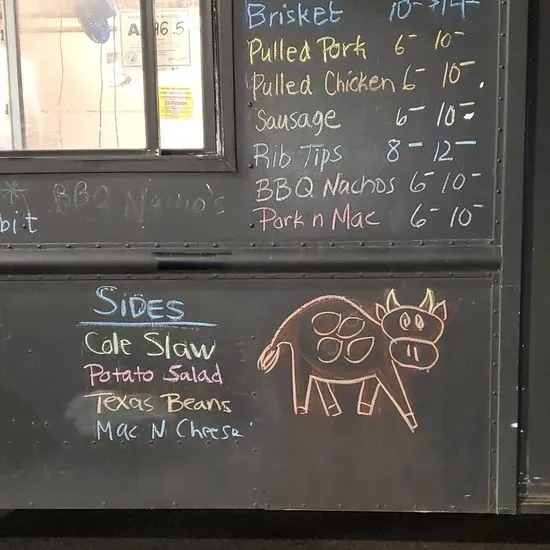 Brisket 10- 14-
Pulled Pork 6- 10-
Pulled Chicken 6- 10-
Sausage 6- 10-
Rib Tips 8- 12-
BBQ Nachos 6- 10-
Pork n Mac 6- 10-
A 96.5
BBQ Nacho's
bit
SIDES
Cole Slaw
Potato Salad
Texas Beans
Mac N Cheese